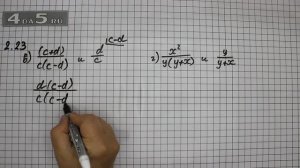 4DA5.RU
2.23
в) (c+d)/c(c-d) и d/c |c-d г) x²/y(y+x) и y/y+x
d(c-d)/c(c-d